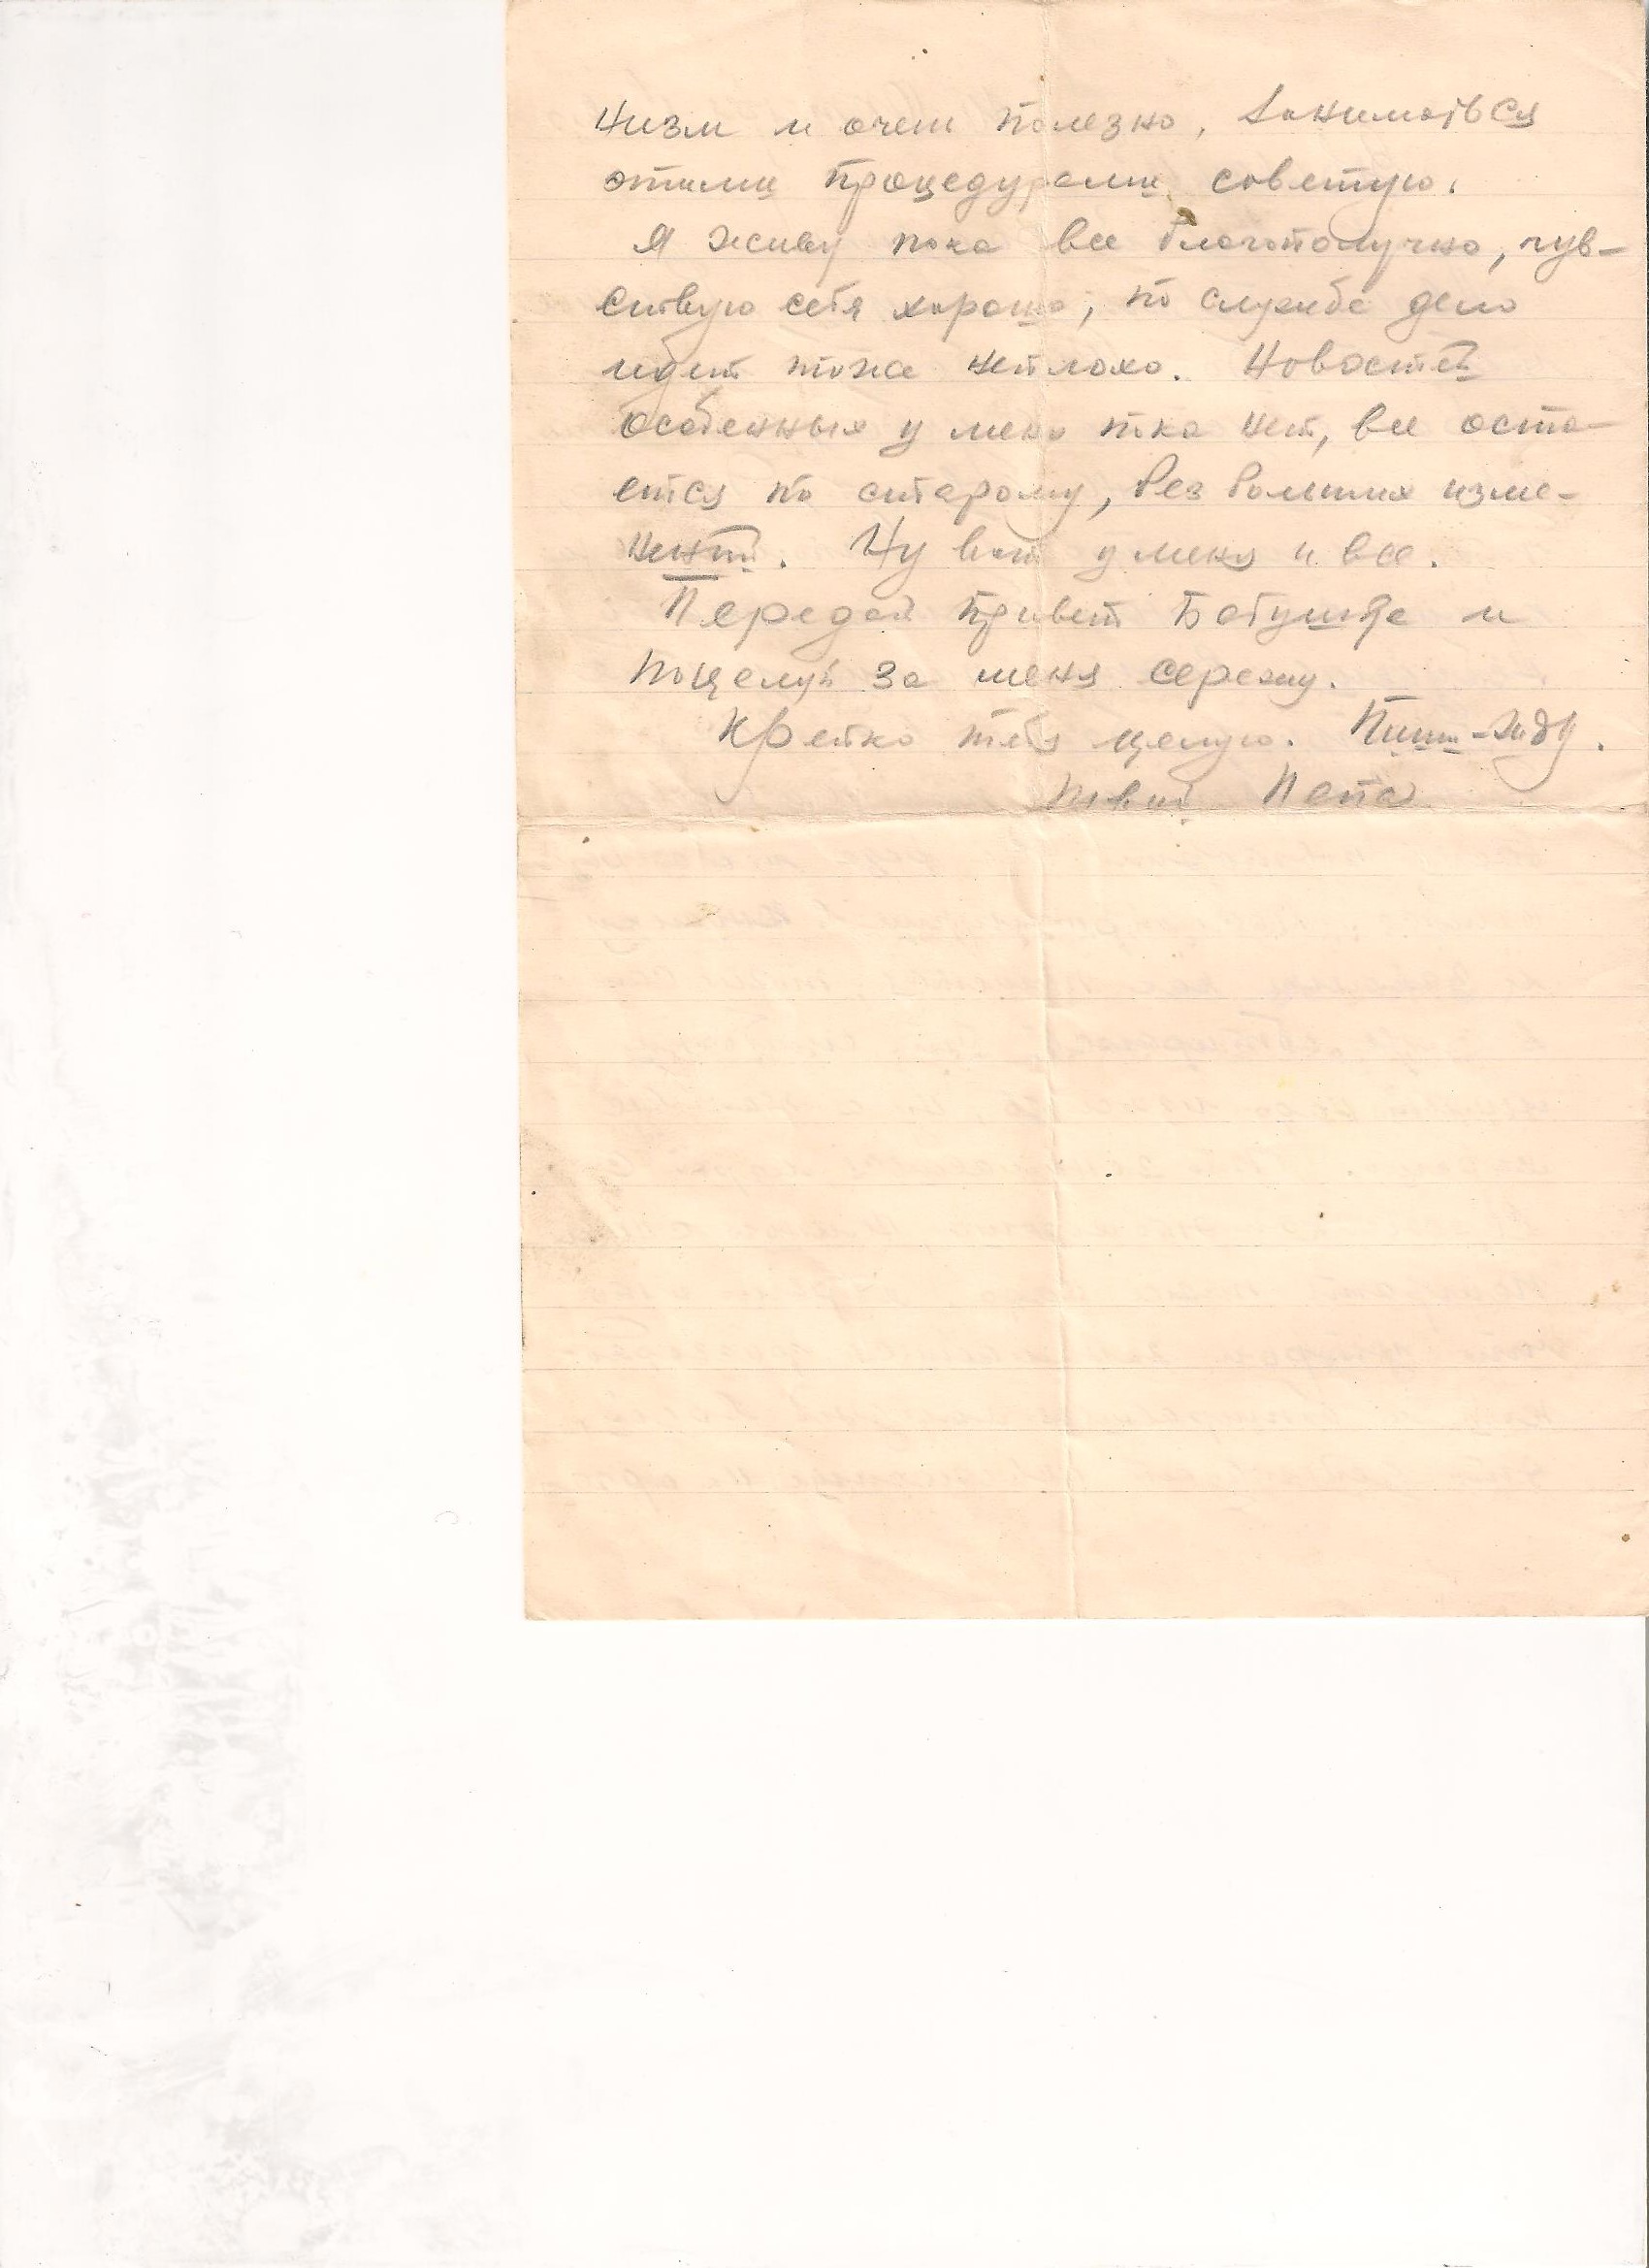 низм и очень полезно, заниматься
этими процедурами советую.
Я живу пока все благополучно, чув-
ствую себя хорошо, по службе дело
идет тоже неплохо. Новостей
особенных у меня пока нет, все оста-
ется по старому, без больших изме-
нений. Ну вот у меня и все.
Передай привет Бабушке и
поцелуй за меня сережу.
Крепко тебя целую. Пиши-жду.
твой Папа